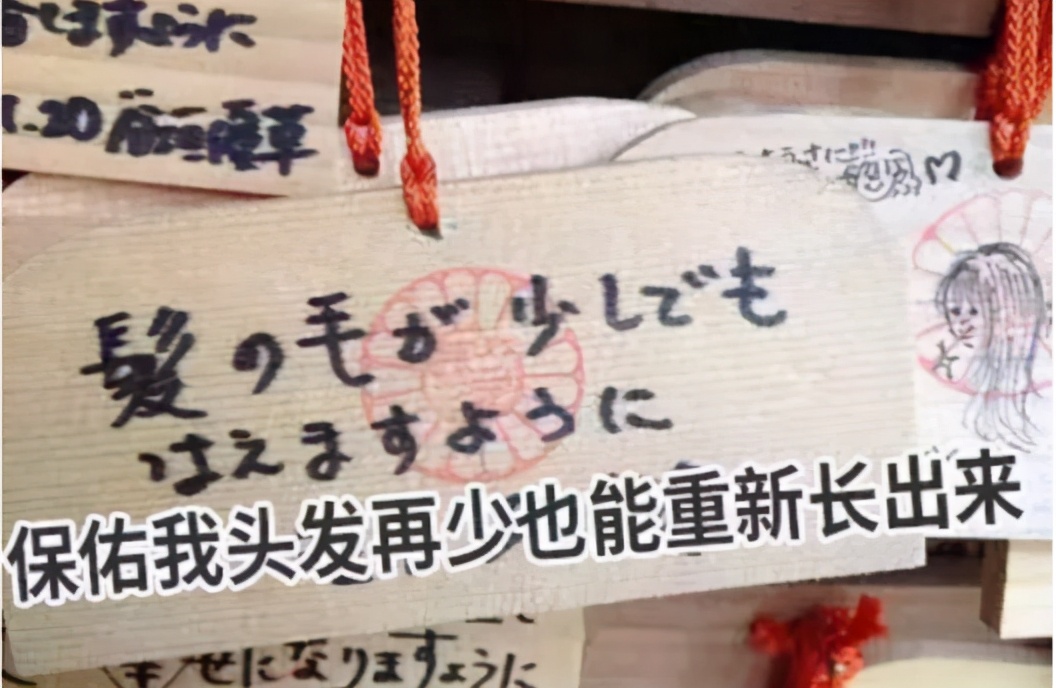 ますように
.20
髪の毛が少しでも
はえますように
保佑我头发再少也能重新长出来
幸せになりますように